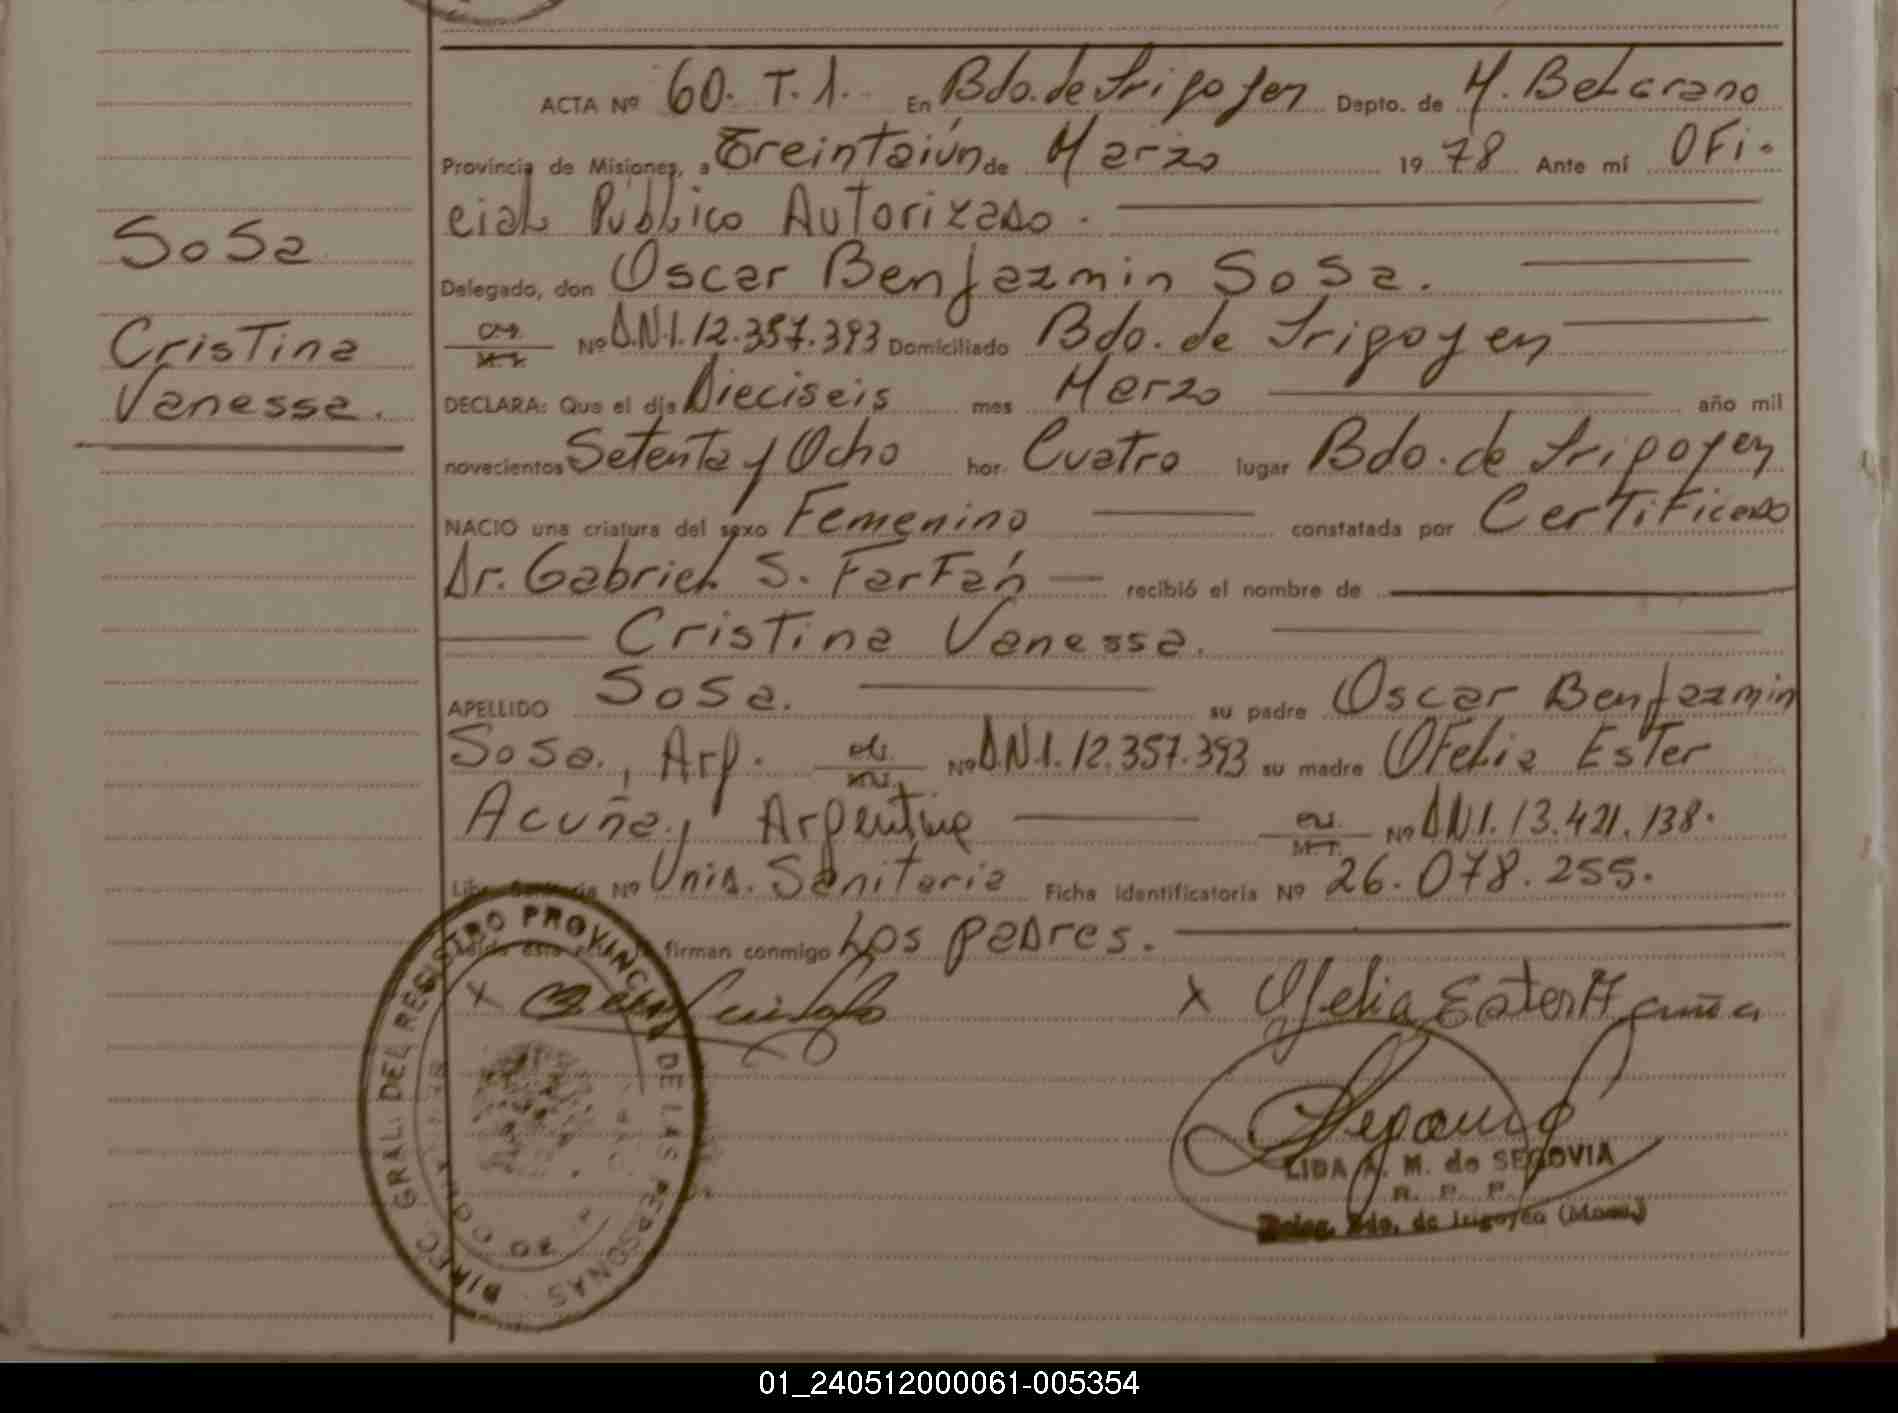 ACTA Nº 60. T. 1. En Bdo. de Irigoyen Depto. de M. Belgrano
Provincia de Misiones, a Treintaiún de Marzo 1978 Ante mí Ofi-
cial Publico Autorizado.
Delegado, don Oscar Benjazmin Sosa.
Nº D.N.I. 12.357.393 Domiciliado Bdo. de Irigoyen
DECLARA: Que el día Dieciseis mes Marzo año mil
novecientos Setenta y Ocho hor. Cuatro lugar Bdo. de Irigoyen
NACIO una criatura del sexo Femenino constatada por Certificado
Dr. Gabriel S. Farfán recibió el nombre de
Cristina Vanessa.
APELLIDO Sosa. su padre Oscar Benjazmin
Sosa., Arg. Nº D.N.I. 12.357.393 su madre Ofelia Ester
Acuña., Argentina Nº D.N.I. 13.421.138.
Nº Unid. Sanitaria Ficha identificatoria Nº 26.078.255.
firman conmigo Los padres.
Sosa
Cristina
Vanessa.
X
X Ofelia Ester Acuña
LIDA A. M. de SEGOVIA
R. P. P.
Deleg. Bdo. de Irigoyen (Mnes.)
DIREC. GRAL. DEL REGISTRO PROVINCIAL DE LAS PERSONAS
01_240512000061-005354